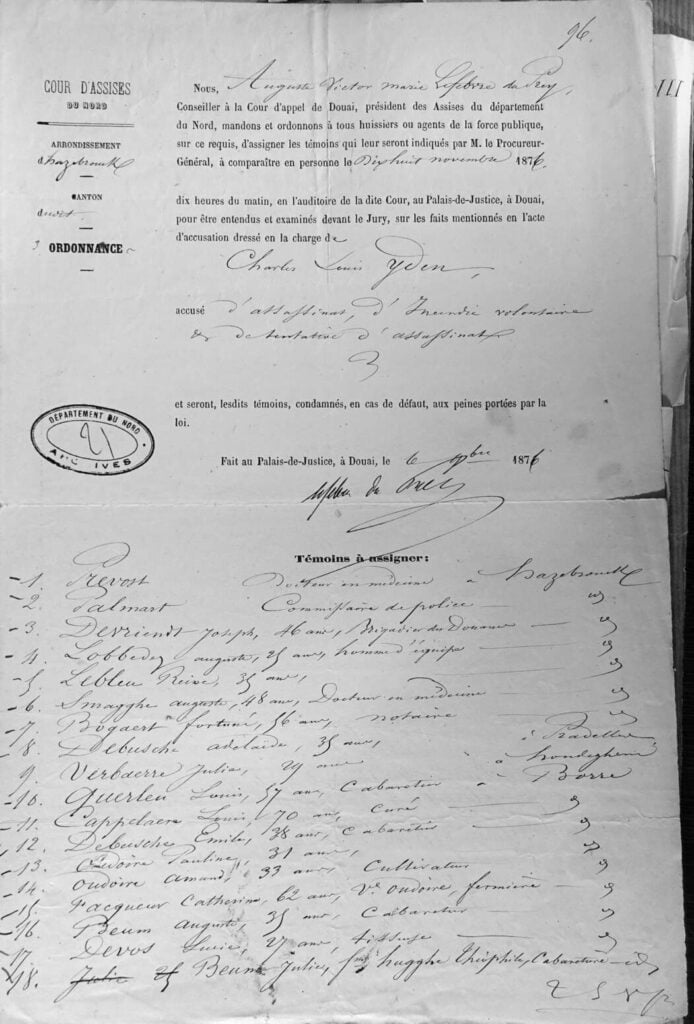 96.
COUR D'ASSISES
DU NORD
ARRONDISSEMENT
d'hazebrouck
CANTON
ORDONNANCE
Nous, Auguste Victor marie Lefebvre du Prey,
Conseiller à la Cour d'appel de Douai, président des Assises du département
du Nord, mandons et ordonnons à tous huissiers ou agents de la force publique,
sur ce requis, d'assigner les témoins qui leur seront indiqués par M. le Procureur-
Général, à comparaître en personne le Dix huit novembre 1876.
dix heures du matin, en l'auditoire de la dite Cour, au Palais-de-Justice, à Douai,
pour être entendus et examinés devant le Jury, sur les faits mentionnés en l'acte
d'accusation dressé en la charge de
Charles Louis Yden,
accusé d'assassinat, d'Incendie volontaire
& de tentative d'assassinat
et seront, lesdits témoins, condamnés, en cas de défaut, aux peines portées par la
loi.
DÉPARTEMENT DU NORD
21
ARCHIVES
Fait au Palais-de-Justice, à Douai, le 6 9bre 1876
Témoins à assigner:
1. Prevost Docteur en médecine à hazebrouck
2. Palmart Commissaire de police — id
3. Devriendt Joseph, 46 ans, Brigadier des Douanes id
4. Lobbedez auguste, 25 ans, homme d'équipe — id
5. Lebleu Reine, 35 ans, id
6. Smagghe auguste, 48 ans, Docteur en médecine — id
7. Bogaert fortuné, 56 ans, notaire id
8. Debusche adelaïde, 35 ans, à Pradelles
9. Verbaere Julie, 29 ans à hondeghem
10. Querleu Louis, 57 ans, Cabaretier à Borre
11. Cappelaere Louis, 70 ans, curé — id
12. Debusche Emile, 38 ans, Cabaretier id
13. Oudoire Pauline, 31 ans, id
14. oudoire amand, 33 ans, Cultivateur id
15. Facqueur Catherine, 62 ans, Ve oudoire, fermière — id
16. Beum auguste, 35 ans, Cabaretier — id
17. Devos Lucie, 27 ans, tisseuse — id
18. Julie 25 Beum Julie, fme hugghe théophile, Cabaretière — id
T S V P